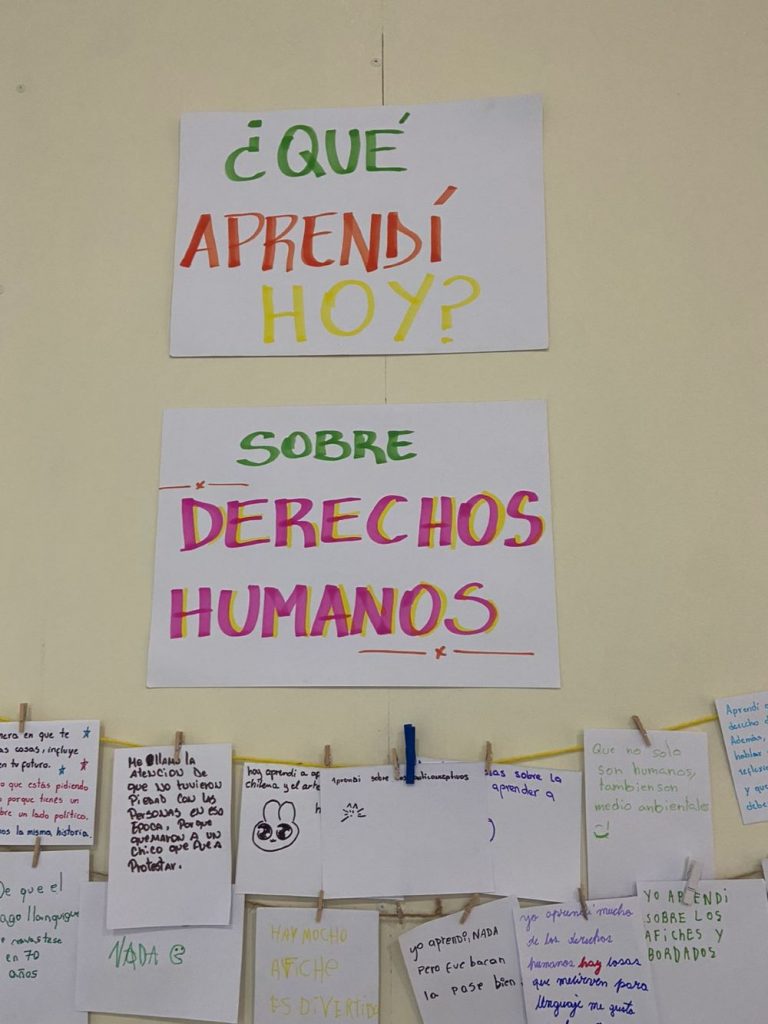 ¿QUÉ
APRENDÍ
HOY?
SOBRE
DERECHOS
HUMANOS
nera en que te
as cosas, influye
n tu futuro.
o que estás pidiendo
porque tienes un
bre un lado político.
nos la misma historia.
Me llamo la
Atencion De
que no tuvieron
Piedad con las
Personas en esa
Epoca, Porque
quemaron a un
Chico que fue a
Protestar.
hoy aprendi a ap
chilena y el arte
h
Aprendi sobre los anticonceptivos
ias sobre la
aprender a
Que no solo
son humanos,
tambien son
medio anbientales
Aprendí
derecho d
Además,
hablar
reflexi
y qu
debe
De que el
ago llanquigue
70
años
NADA
HAY MUCHO
AFiche
ES DiVERTIDO
yo aprendi, NADA
Pero fue bacan
la pase bien
yo aprendi mucho
de los derechos
humanos hay cosas
que me sirven para
lenguaje me gusto
YO APRENDI
SOBRE LOS
AFICHES Y
BORDADOS